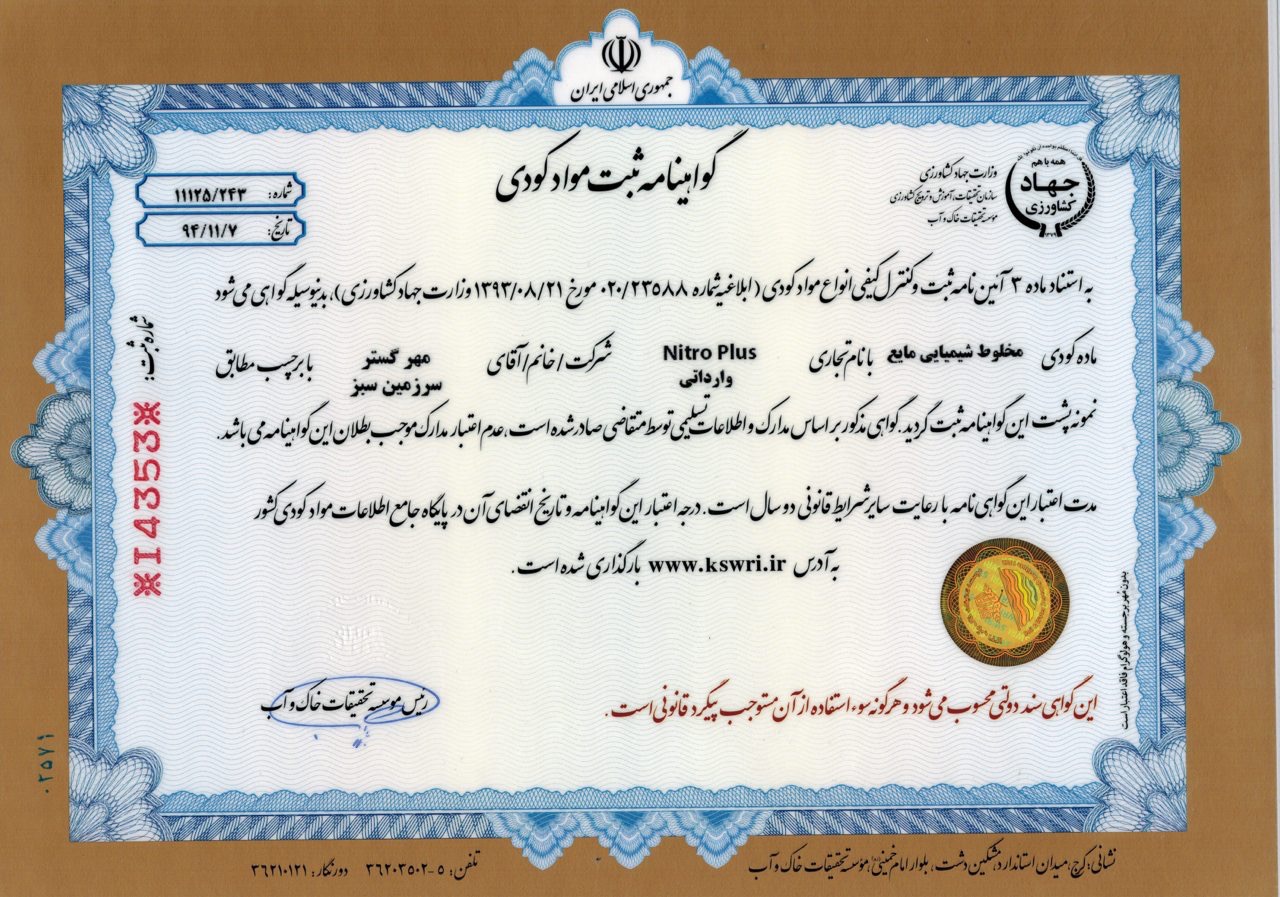 جمهوری اسلامی ایران
همه با هم
جهاد
کشاورزی
۱۳۷۹
وزارت جهاد کشاورزی
سازمان تحقیقات، آموزش و ترویج کشاورزی
موسسه تحقیقات خاک و آب
گواهینامه ثبت مواد کودی
شماره: ۱۱۱۲۵/۲۴۳
تاریخ: ۹۴/۱۱/۷
به استناد ماده ۳ آئین نامه ثبت و کنترل کیفی انواع مواد کودی (ابلاغیه شماره ۰۲۰/۲۳۵۸۸ مورخ ۱۳۹۳/۰۸/۲۱ وزارت جهاد کشاورزی)، بدینوسیله گواهی می شود
ماده کودی مخلوط شیمیایی مایع با نام تجاری Nitro Plus وارداتی شرکت / خانم / آقای مهر گستر سرزمین سبز با برچسب مطابق
نمونه پشت این گواهینامه ثبت گردید. گواهی مذکور بر اساس مدارک و اطلاعات تسلیمی توسط متقاضی صادر شده است، عدم اعتبار مدارک موجب بطلان این گواهینامه می باشد.
مدت اعتبار این گواهی نامه با رعایت سایر شرایط قانونی دو سال است. درجه اعتبار این گواهینامه و تاریخ انقضای آن در پایگاه جامع اطلاعات مواد کودی کشور
به آدرس www.kswri.ir بارگذاری شده است.
شماره ثبت:
※14353※
بدون مهر برجسته و هولوگرام فاقد اعتبار است
رئیس موسسه تحقیقات خاک و آب
این گواهی سند دولتی محسوب می شود و هرگونه سوء استفاده از آن مستوجب پیگرد قانونی است.
۰۲۵۷۱
نشانی: کرج، میدان استاندارد، مشکین دشت، بلوار امام خمینی، موسسه تحقیقات خاک و آب
تلفن: ۵-۳۶۲۰۳۵۰۲ دورنگار: ۳۶۲۱۰۱۲۱